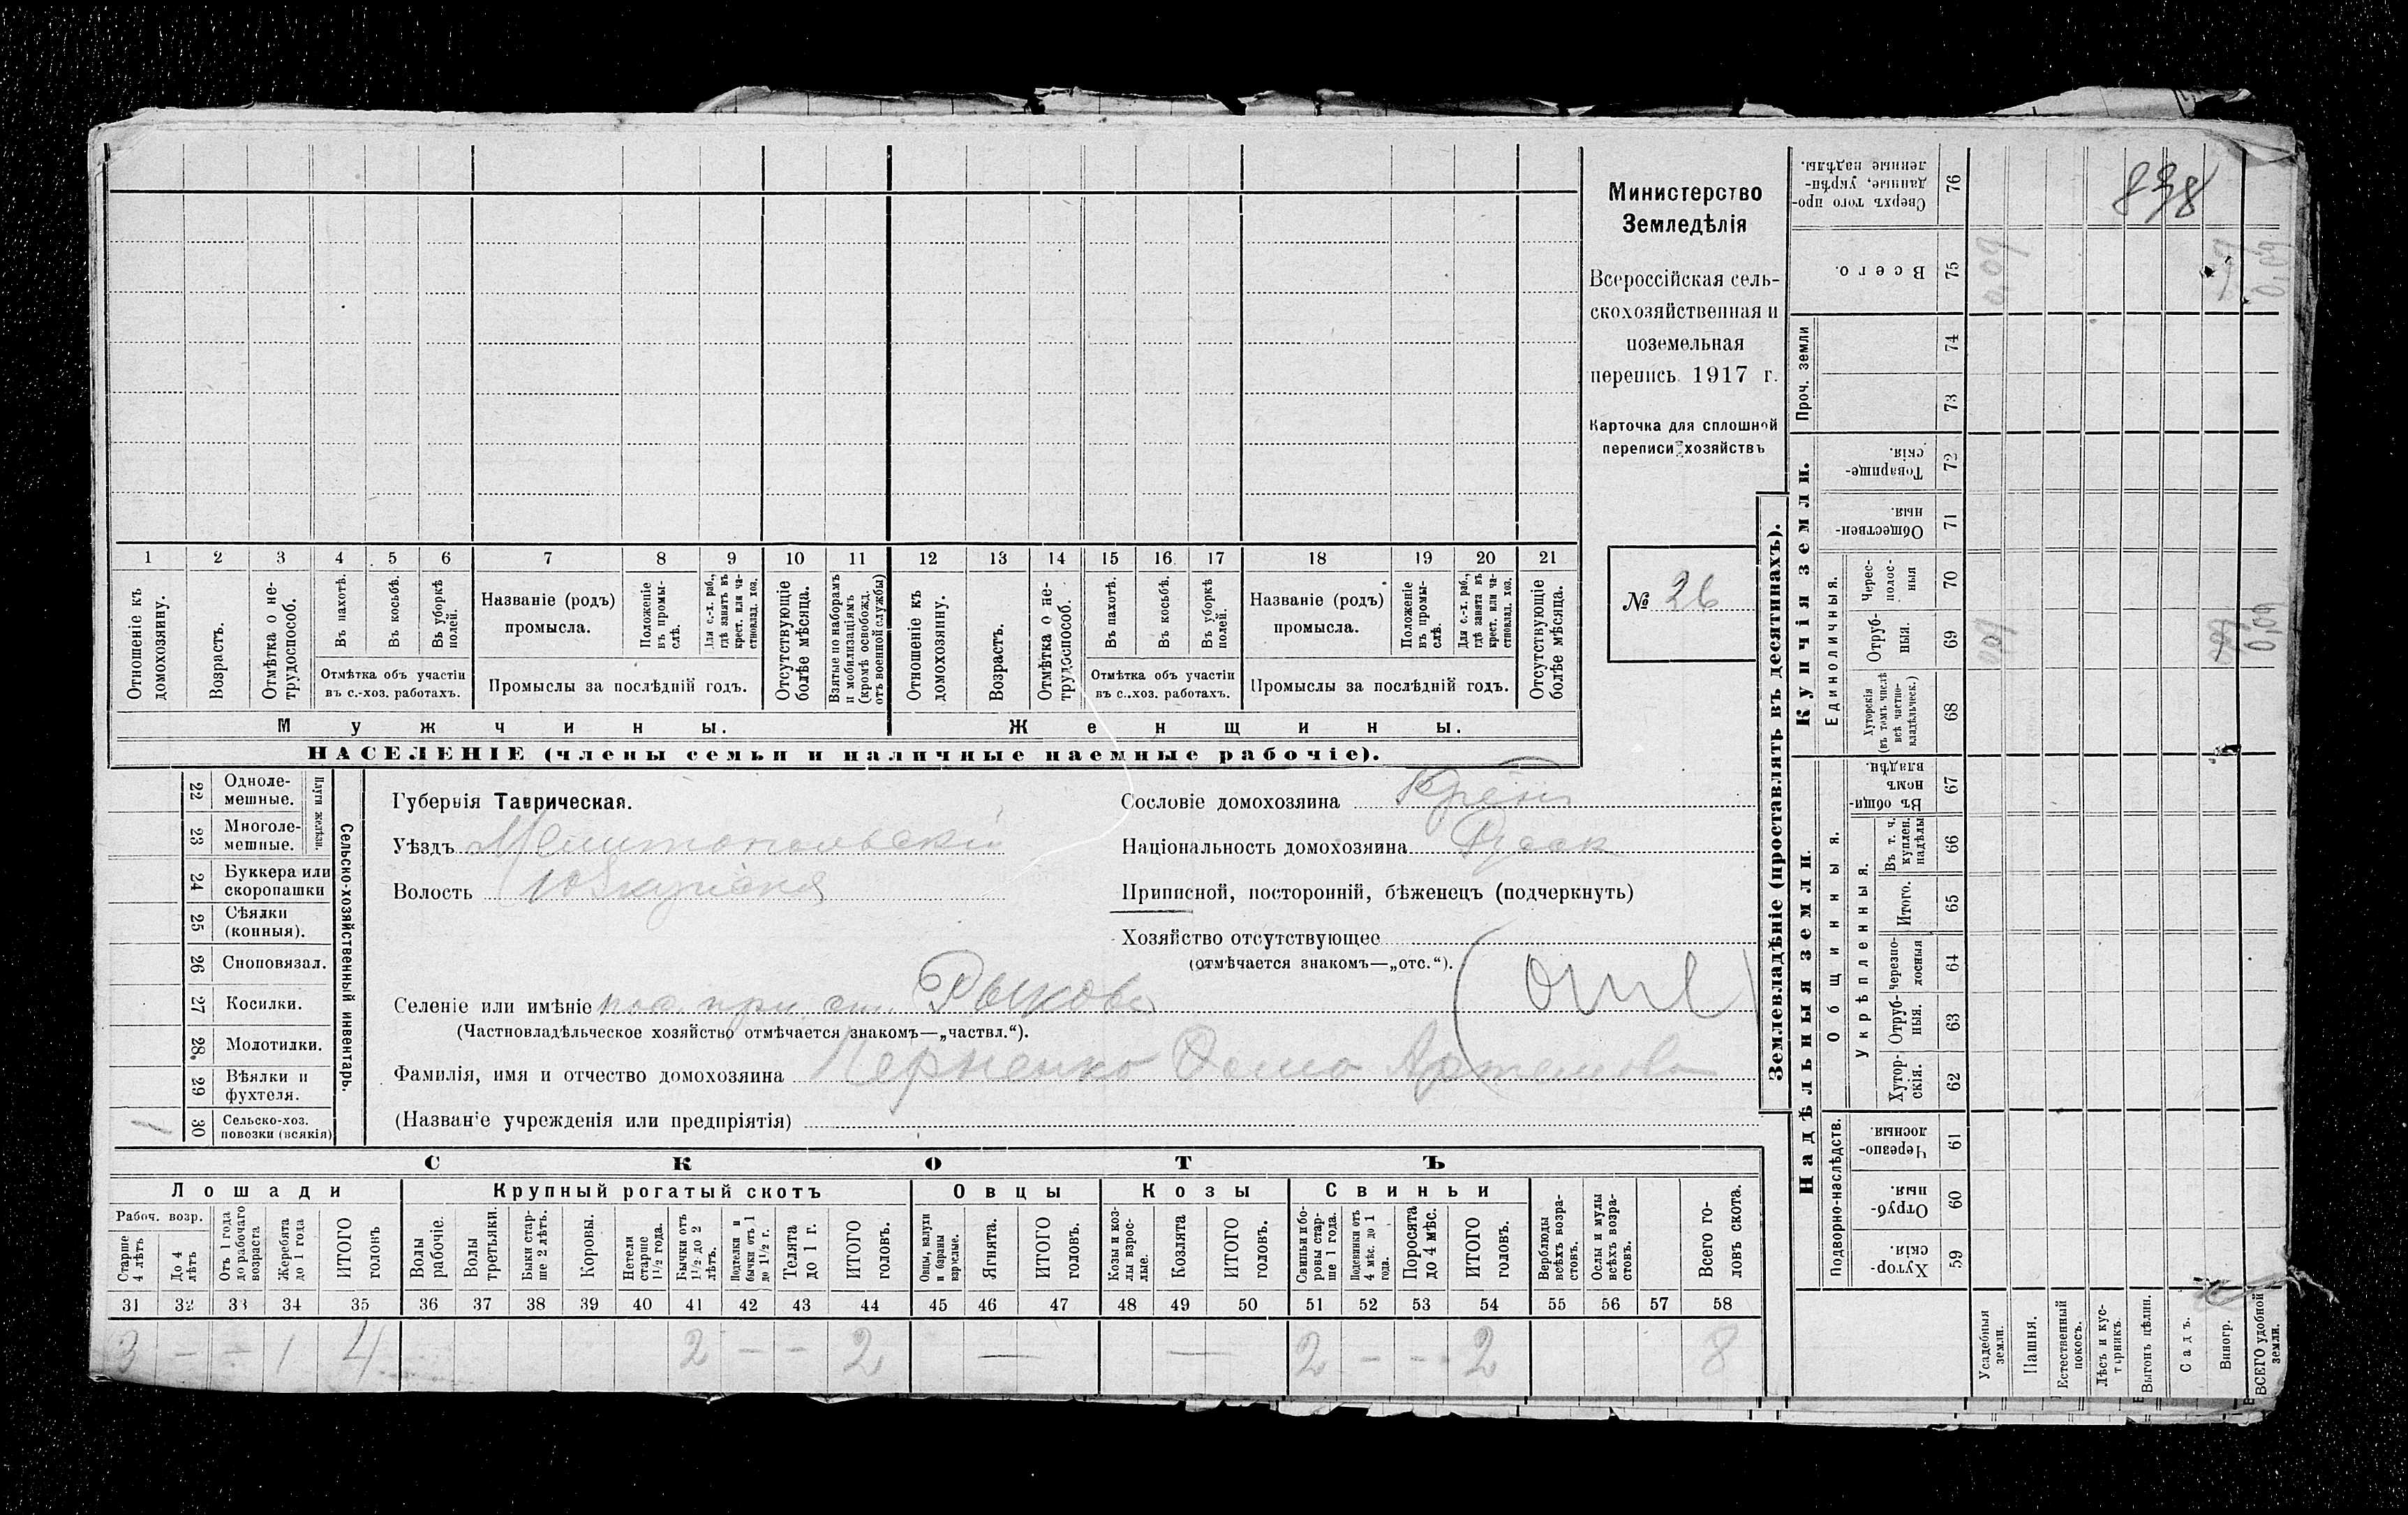 Министерство
Земледѣлія
Всероссійская сель-
скохозяйственная и
поземельная
перепись 1917 г.
Карточка для сплошной
переписи хозяйствъ
№ 26
838
1 2 3 4 5 6 7 8 9 10 11 12 13 14 15 16 17 18 19 20 21
Отношеніе къ домохозяину.
Возрастъ.
Отмѣтка о не-трудоспособ.
Въ пахотѣ.
Въ косьбѣ.
Въ уборкѣ полей.
Отмѣтка объ участіи въ с.-хоз. работахъ.
Названіе (родъ) промысла.
Положеніе въ промы-слѣ.
Для с.-х. раб., гдѣ занятъ въ крест. или ча-стновлад. хоз.
Промыслы за послѣдній годъ.
Отсутствующіе болѣе мѣсяца.
Взятые по наборамъ и мобилизаціямъ (кромѣ освобожд. отъ военной службы)
Отношеніе къ домохозяину.
Возрастъ.
Отмѣтка о не-трудоспособ.
Въ пахотѣ.
Въ косьбѣ.
Въ уборкѣ полей.
Отмѣтка объ участіи въ с.-хоз. работахъ.
Названіе (родъ) промысла.
Положеніе въ промы-слѣ.
Для с.-х. раб., гдѣ занята въ крест. или ча-стновлад. хоз.
Промыслы за послѣдній годъ.
Отсутствующіе болѣе мѣсяца.
Мужчины. Женщины.
НАСЕЛЕНІЕ (члены семьи и наличные наемные рабочіе).
Сельско-хозяйственный инвентарь.
Плуги желѣзн.
22 Одноле-мешные.
23 Многоле-мешные.
24 Буккера или скоропашки
25 Сѣялки (конныя).
26 Сноповязал.
27 Косилки.
28 Молотилки.
29 Вѣялки и фухтеля.
30 Сельско-хоз. повозки (всякія) 1
Губернія Таврическая.
Уѣздъ Мелитопольскій
Волость
Селеніе или имѣніе пос. при ст. Рыково
(Частновладѣльческое хозяйство отмѣчается знакомъ—„частвл.“).
Фамилія, имя и отчество домохозяина
(Названіе учрежденія или предпріятія)
Сословіе домохозяина
Національность домохозяина
Приписной, посторонній, бѣженецъ (подчеркнуть)
Хозяйство отсутствующее
(отмѣчается знакомъ—„отс.“).
СКОТЪ
Лошади Крупный рогатый скотъ Овцы Козы Свиньи
Рабоч. возр.
Старше 4 лѣтъ
До 4 лѣтъ
Отъ 1 года до рабочаго возраста
Жеребята до 1 года
ИТОГО головъ
Волы рабочіе.
Волы третьяки.
Быки стар-ше 2 лѣтъ.
Коровы.
Нетели старше 1½ года.
Бычки отъ 1½ до 2 лѣтъ.
Подтелки и бычки отъ 1 до 1½ г.
Телята до 1 г.
ИТОГО головъ.
Овцы, валухи и бараны взрослые.
Ягнята.
ИТОГО головъ.
Козы и коз-лы взрос-лые.
Козлята
ИТОГО головъ.
Свиньи и бо-ровы стар-ше 1 года.
Подсвинки отъ 4 мѣс. до 1 года.
Поросята до 4 мѣс.
ИТОГО головъ.
Верблюды всѣхъ возра-стовъ.
Ослы и мулы всѣхъ возра-стовъ.
Всего го-ловъ скота.
31 32 33 34 35 36 37 38 39 40 41 42 43 44 45 46 47 48 49 50 51 52 53 54 55 56 57 58
3 — — 1 4 2 — — 2 — — 2 — — 2 8
Землевладѣніе (проставлять въ десятинахъ).
Надѣльныя земли. Купчія земли. Проч. земли
Подворно-наслѣдств.
Общинныя.
Укрѣпленныя.
Единоличныя.
59 Хутор-скія.
60 Отруб-ныя.
61 Черезпо-лосныя.
62 Хутор-скія.
63 Отруб-ныя.
64 черезпо-лосныя
65 Итого.
66 Въ т. ч. куплен. надѣлы
67 Въ общи-номъ владѣн.
68 Хуторскія (въ томъ числѣ всѣ частно-владѣльческ.)
69 Отруб-ныя.
70 Черес-полос-ныя
71 Обществен-ныя.
72 Товарище-скія.
73
74
75 Всего.
76 Сверхъ того про-данные, укрѣп-ленные надѣлы.
Усадебныя земли.
Пашня.
Естественный покосъ.
Лѣсъ и кус-тарникъ.
Выгонъ цѣлин.
Садъ.
Виногр.
ВСЕГО удобной земли.
0,09
0,09
0,09